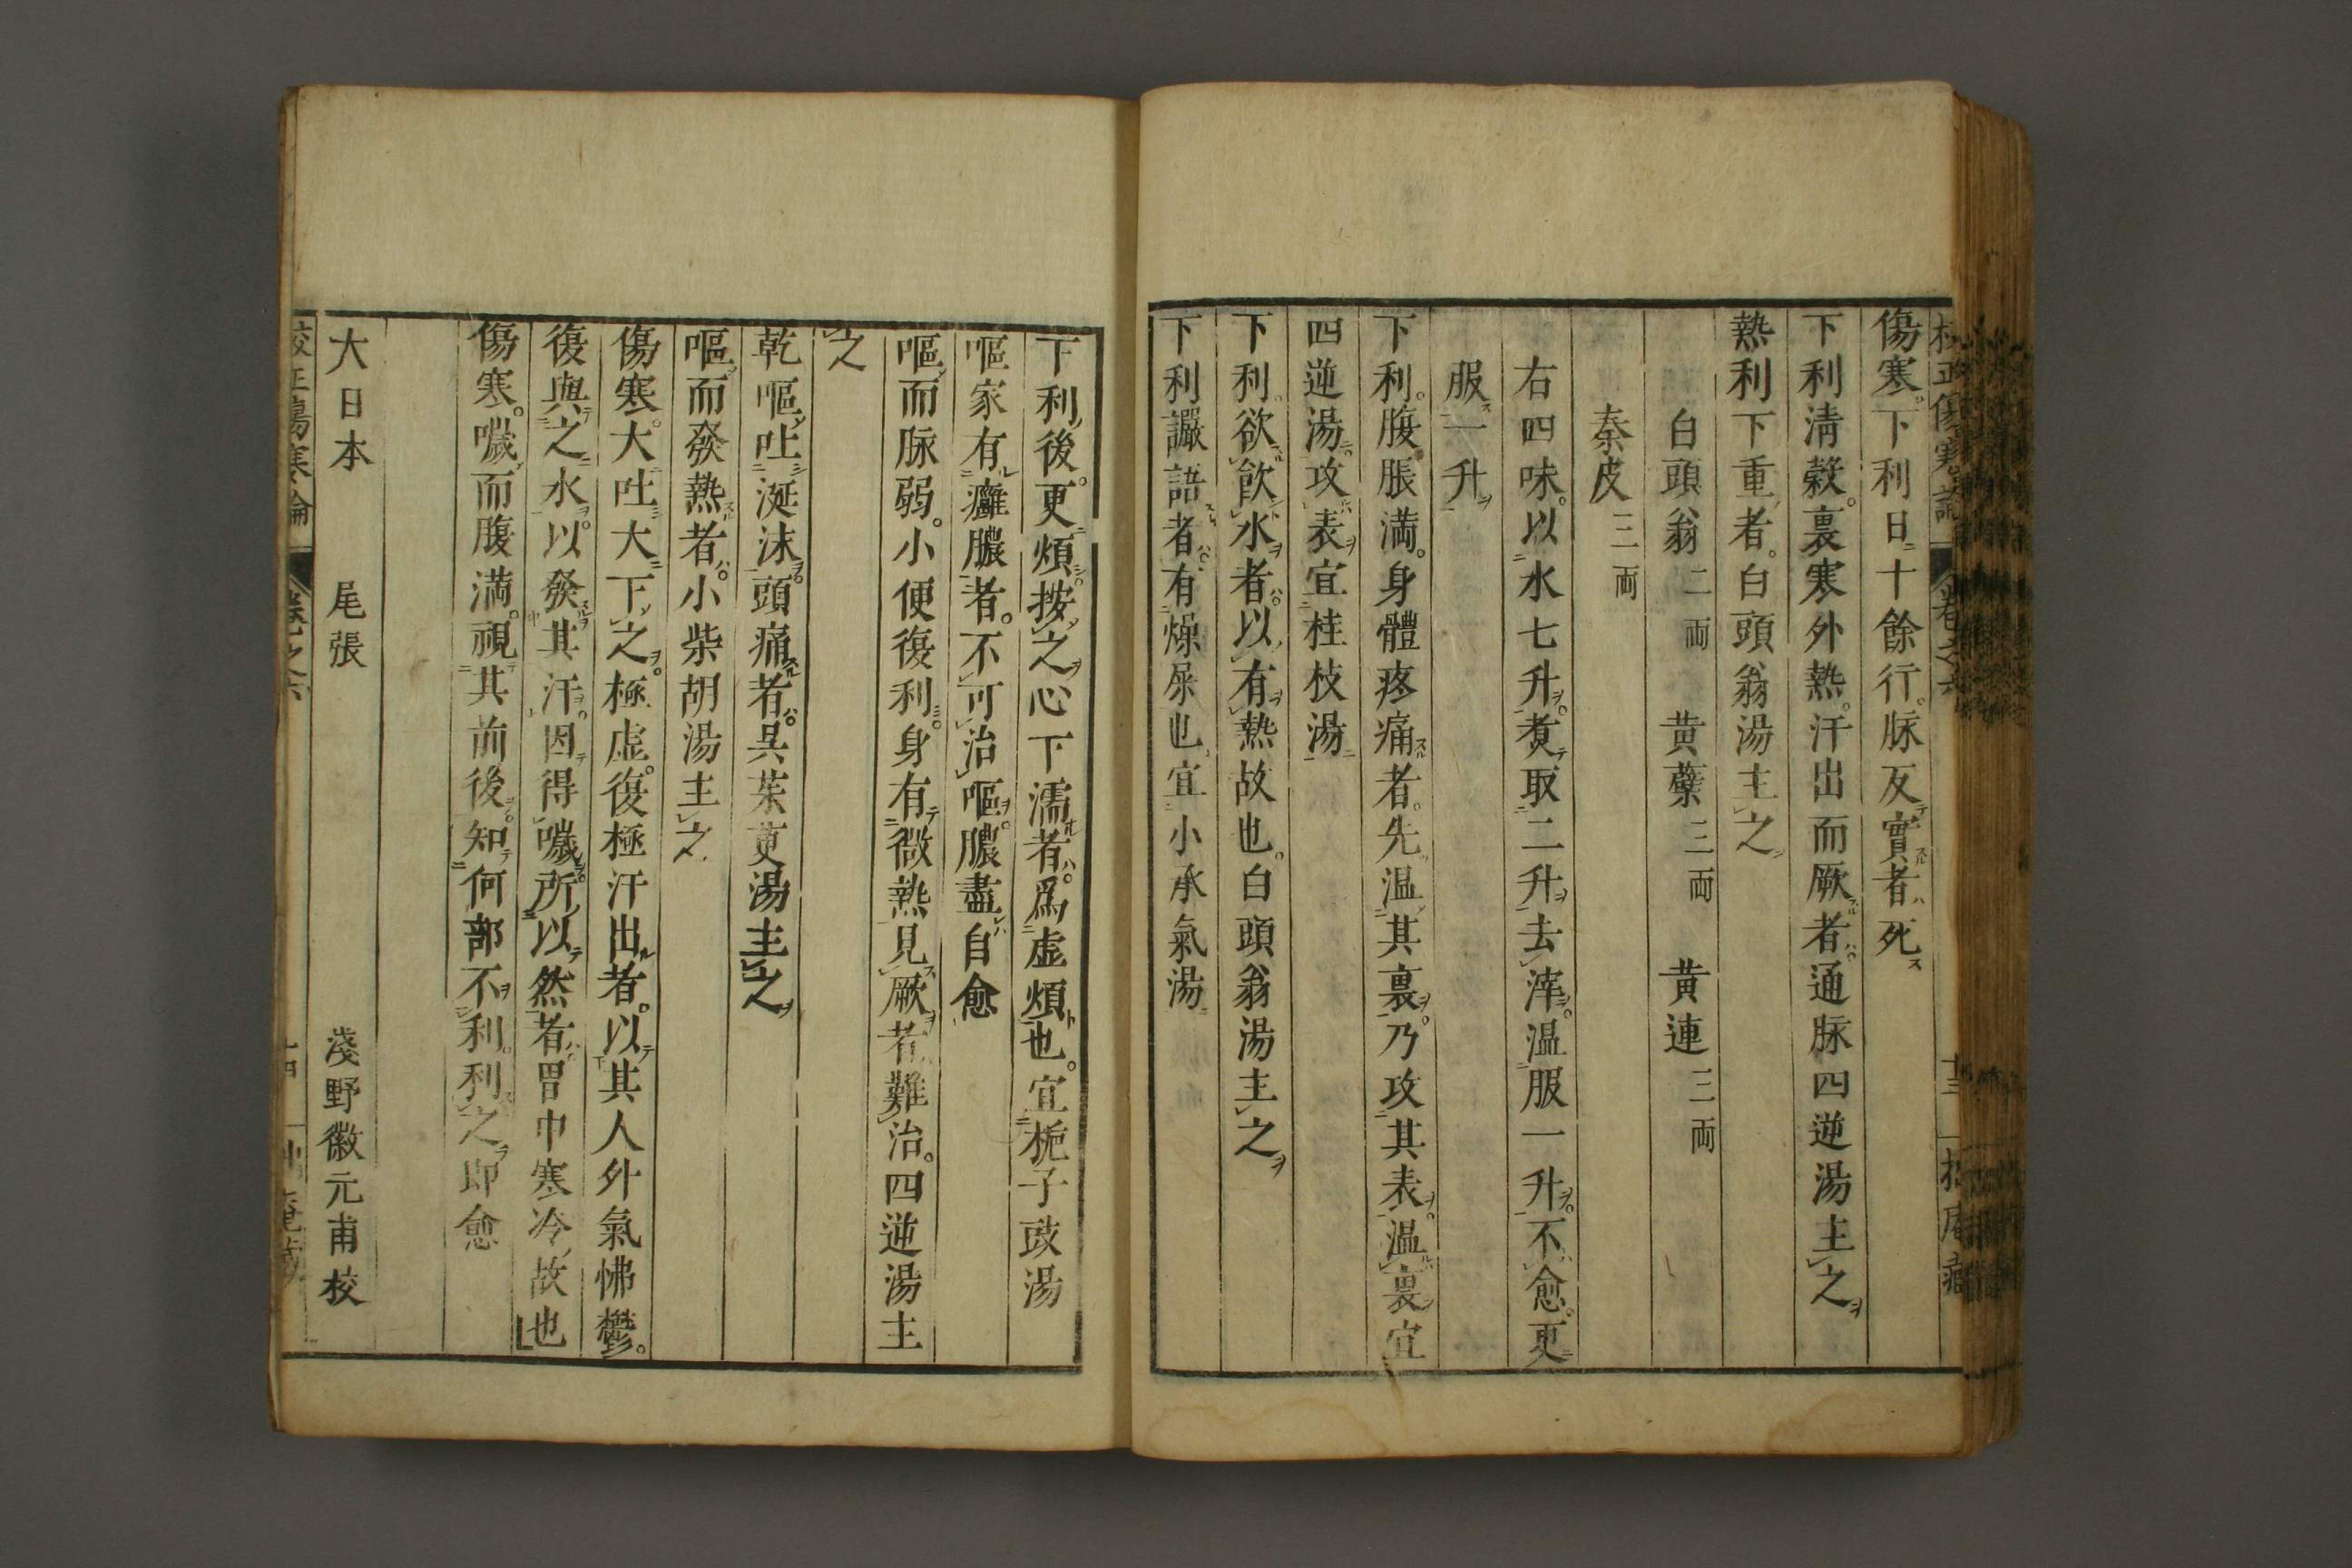 校正傷寒論 卷之六 十三
傷寒。下利日十餘行。脉反實者死
下利清穀。裏寒外熱。汗出而厥者。通脉四逆湯主之
熱利下重者。白頭翁湯主之
白頭翁二両 黄蘗三両 黄連三両
秦皮三両
右四味。以水七升。煑取二升。去滓。温服一升。不愈。更
服一升
下利。腹脹満。身體疼痛者。先温其裏。乃攻其表。温裏宜
四逆湯。攻表宜桂枝湯
下利。欲飲水者。以有熱故也。白頭翁湯主之
下利讝語者。有燥屎也。宜小承氣湯
下利後。更煩。按之心下濡者。爲虚煩也。宜梔子豉湯
嘔家有癰膿者。不可治嘔。膿盡自愈
嘔而脉弱。小便復利。身有微熱見厥者。難治。四逆湯主
之
乾嘔吐涎沫。頭痛者。呉茱萸湯主之
嘔而發熱者。小柴胡湯主之
傷寒。大吐大下之。極虚。復極汗出者。以其人外氣怫鬱。
復與之水。以發其汗。因得噦。所以然者。胃中寒冷故也
傷寒。噦而腹満。視其前後。知何部不利。利之即愈
大日本 尾張 淺野徽元甫校
校正傷寒論 卷之六